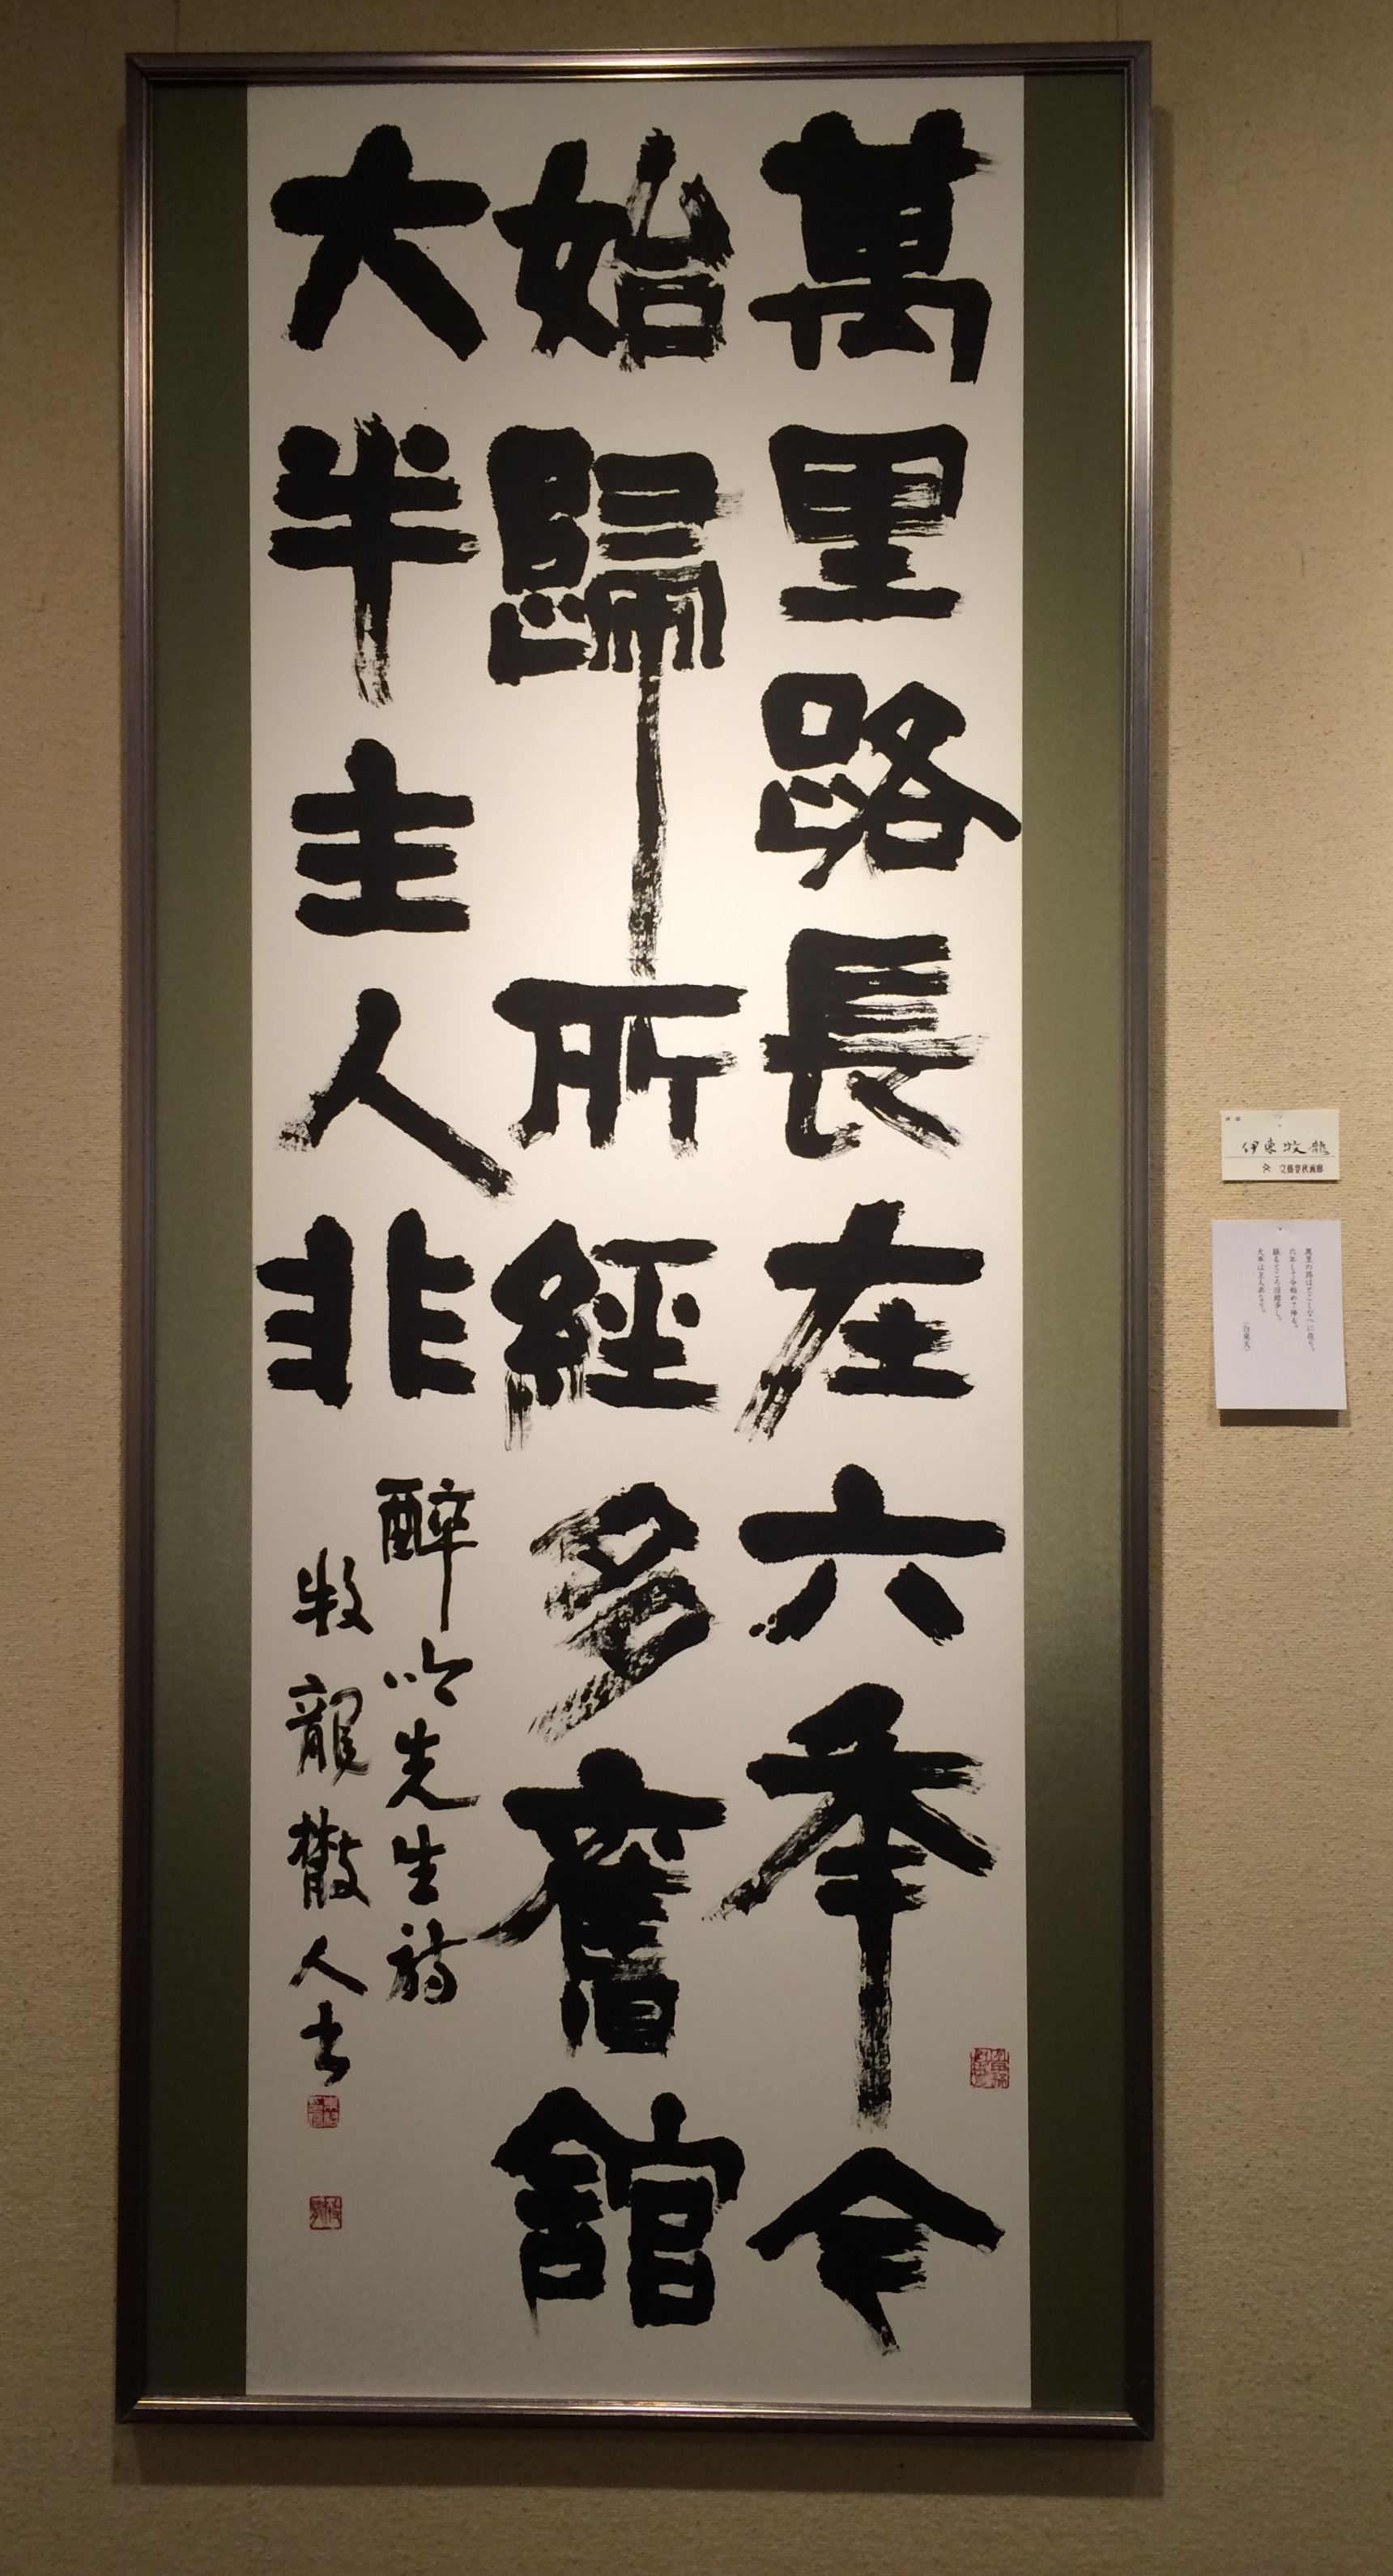 萬里路長在六年今
始歸所經多舊館
大半主人非
醉吟先生詩
牧龍散人書
伊東牧龍
文藝春秋画廊
萬里の路はとこしなへに在り。
六年して今始めて帰る。
経るところ旧館多し、
大半は主人非なり。
(白楽天)